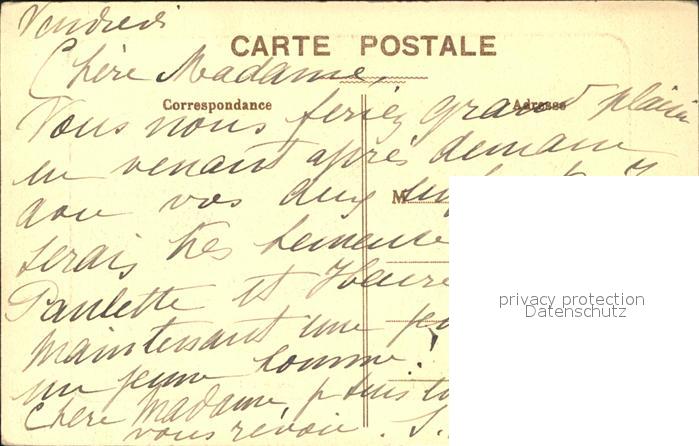 Vendredi
CARTE POSTALE
Chère Madame,
Correspondance
Adresse
Vous nous feriez grand plaisir
en venant après demain
avec vos deux
M
serais très heureuse
Paulette et
maintenant une
un jeune homme.
Chère Madame,
vous revoir. S.
privacy protection
Datenschutz